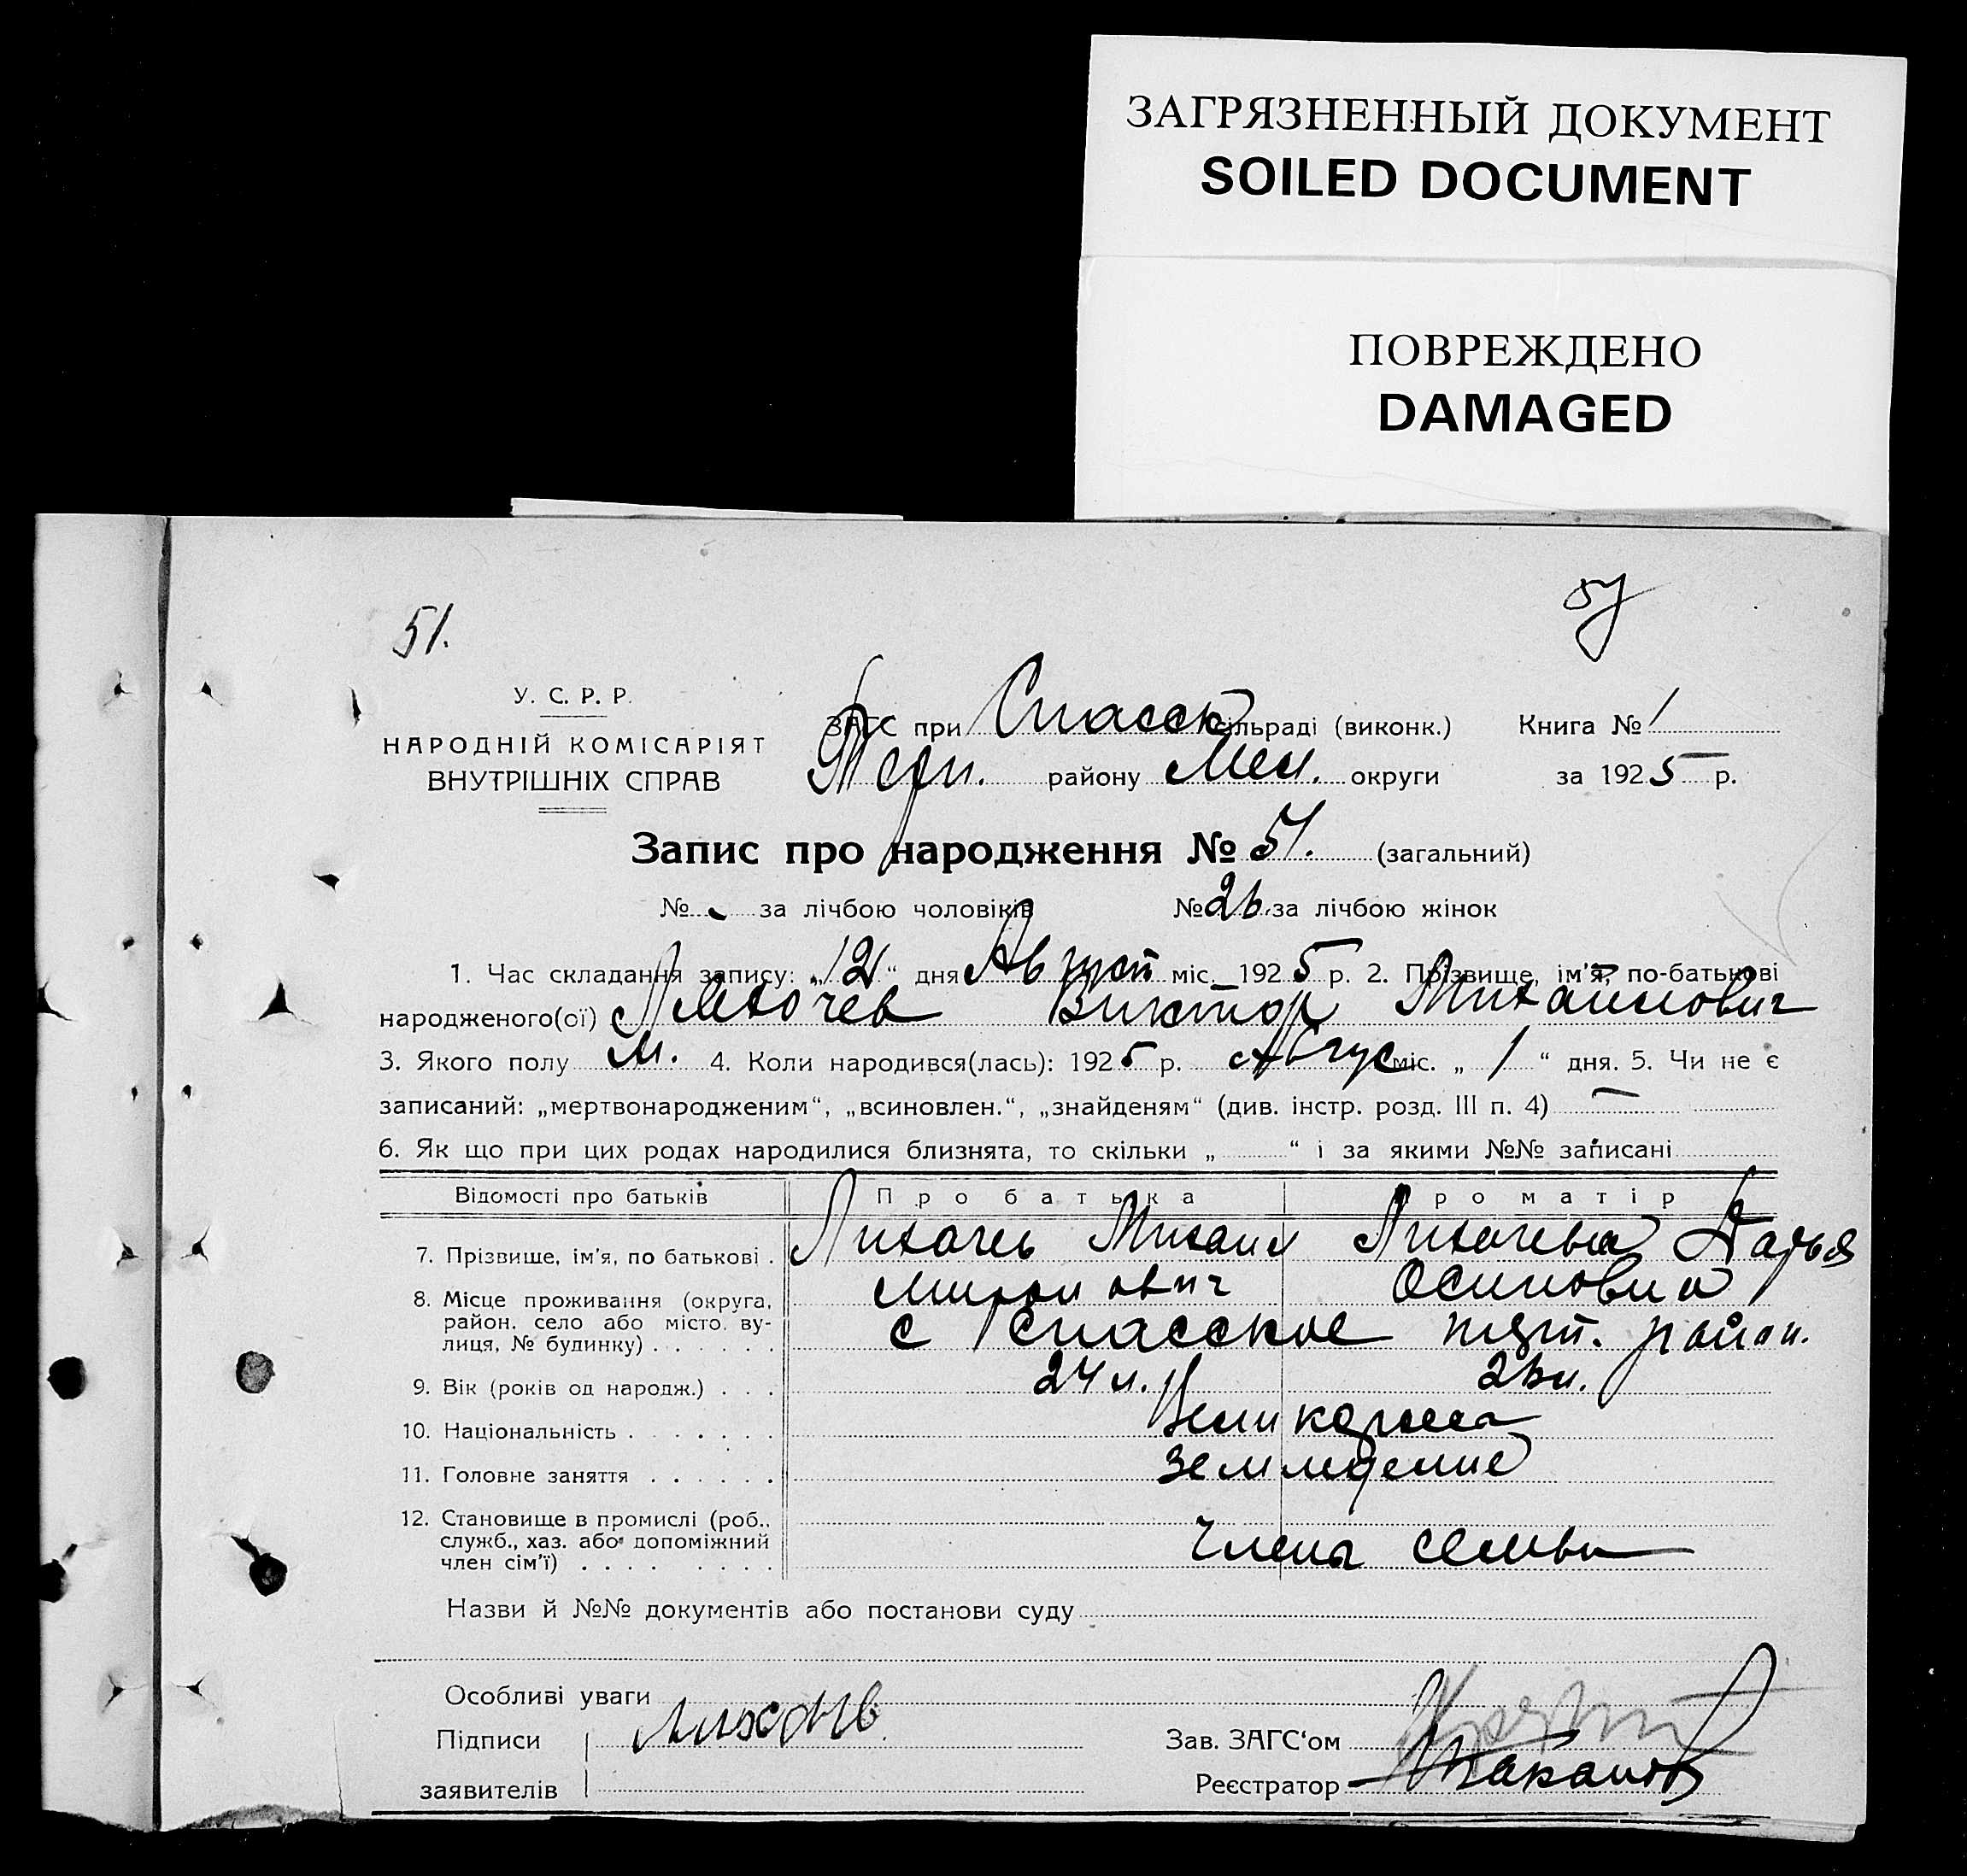 ЗАГРЯЗНЕННЫЙ ДОКУМЕНТ
SOILED DOCUMENT
ПОВРЕЖДЕНО
DAMAGED
51.
У. С. Р. Р.
НАРОДНІЙ КОМІСАРІЯТ
ВНУТРІШНІХ СПРАВ
ЗАГС при Спасск сільраді (виконк.) Книга № 1
Терп. району Мел. округи за 1925 р.
Запис про народження № 51. (загальний)
№ за лічбою чоловіків № 26 за лічбою жінок
1. Час складання запису: „12“ дня Август міс. 1925 р. 2. Прізвище, ім'я, по-батькові
народженого(ої) Лихачев Виктор Михаилович
3. Якого полу м. 4. Коли народився(лась): 1925 р. Авгус міс. „1“ дня. 5. Чи не є
записаний: „мертвонародженим“, „всиновлен.“, „знайденям“ (див. інстр. розд. III п. 4) —
6. Як що при цих родах народилися близнята, то скільки „ “ і за якими №№ записані
Відомості про батьків Про батька Про матір
7. Прізвище, ім'я, по батькові . Лихачев Михаил Лихачева Дарья
Миронович Осиповна
8. Місце проживання (округа,
район, село або місто, ву-
лиця, № будинку) . . . . . . с Спасское терп. район.
9. Вік (років од народж.) . . . 24 л. 23 л.
10. Національність . . . . . . . Великоросса
11. Головне заняття . . . . . . земледелие
12. Становище в промислі (роб.,
служб., хаз. або допоміжний
член сім'ї) . . . . . . . . Члена семьи
Назви й №№ документів або постанови суду
Особливі уваги
Підписи Лихачев
заявителів
Зав. ЗАГС'ом
Реєстратор